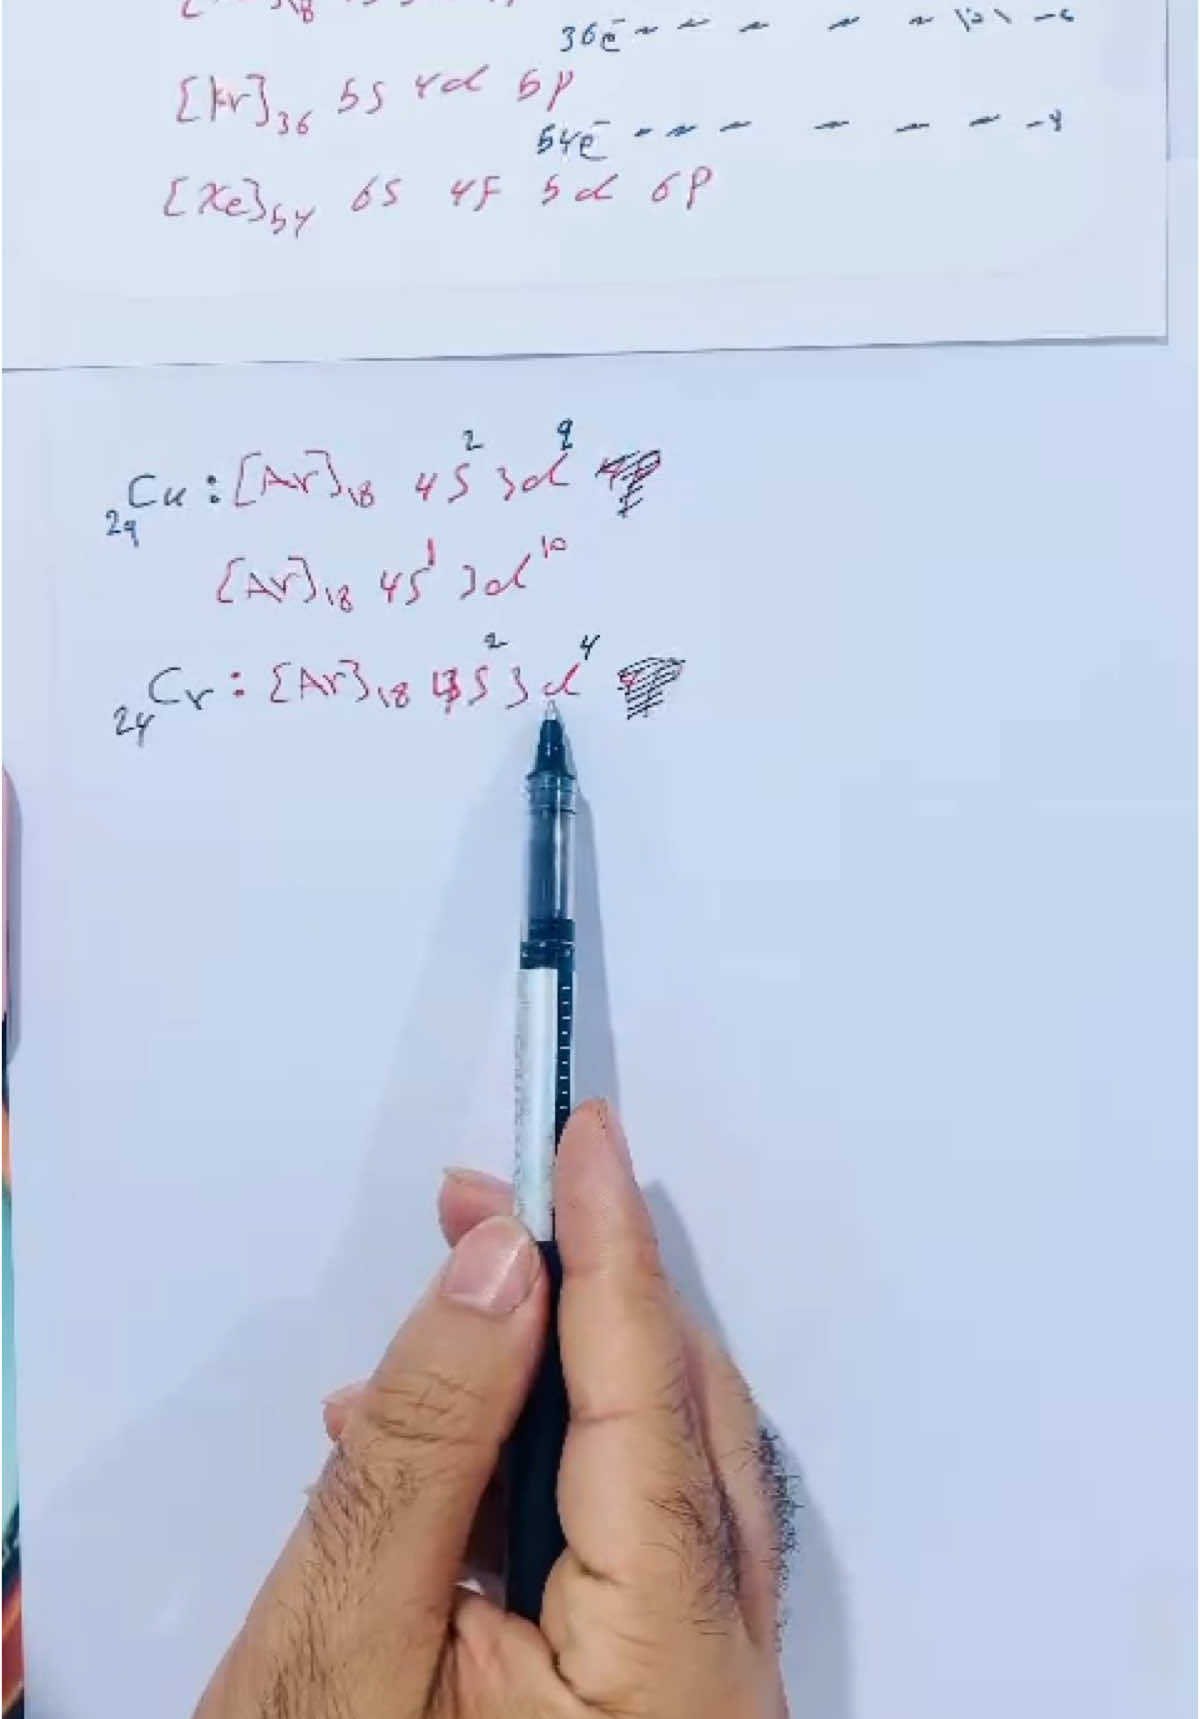 36e⁻
[Kr]₃₆ 5S 4d 5p
54e⁻
[Xe]₅₄ 6S 4F 5d 6p
₂₉Cu : [Ar]₁₈ 4S² 3d⁹
[Ar]₁₈ 4S¹ 3d¹⁰
₂₄Cr : [Ar]₁₈ 4S² 3d⁴